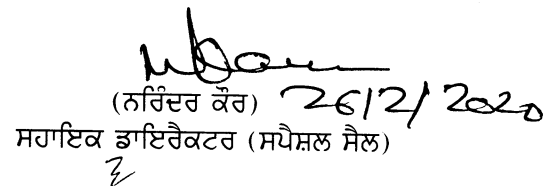 (ਨਰਿੰਦਰ ਕੌਰ) 26/2/2020
ਸਹਾਇਕ ਡਾਇਰੈਕਟਰ (ਸਪੈਸ਼ਲ ਸੈਲ)